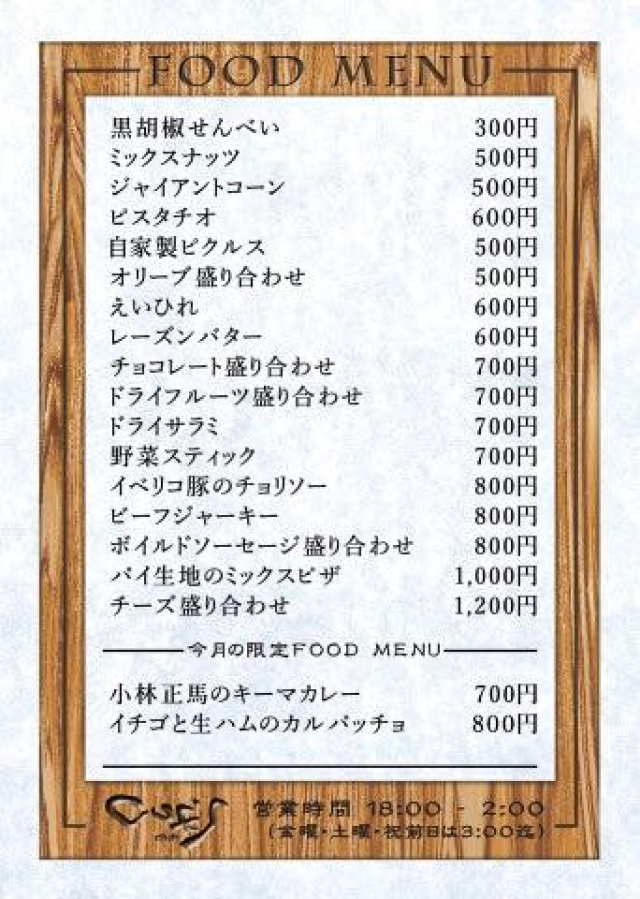 FOOD MENU
黒胡椒せんべい 300円
ミックスナッツ 500円
ジャイアントコーン 500円
ピスタチオ 600円
自家製ピクルス 500円
オリーブ盛り合わせ 500円
えいひれ 600円
レーズンバター 600円
チョコレート盛り合わせ 700円
ドライフルーツ盛り合わせ 700円
ドライサラミ 700円
野菜スティック 700円
イベリコ豚のチョリソー 800円
ビーフジャーキー 800円
ボイルドソーセージ盛り合わせ 800円
パイ生地のミックスピザ 1,000円
チーズ盛り合わせ 1,200円
今月の限定FOOD MENU
小林正馬のキーマカレー 700円
イチゴと生ハムのカルパッチョ 800円
営業時間 18:00 - 2:00
(金曜・土曜・祝前日は3:00迄)